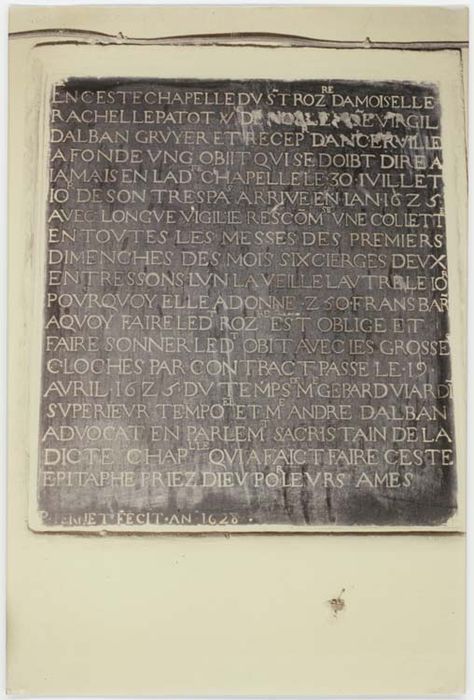 EN CESTE CHAPELLE DV S.T ROZ.RE DAMOISELLE
RACHELLE PATOT V DE NOBLE VIRGIL
DALBAN GRVYER ET RECEP DANCERVILLE
A FONDE VNG OBIIT QVI SE DOIBT DIRE A
IAMAIS EN LAD CHAPELLE LE 30 IVILLET
IOR DE SON TRESPAS ARRIVE EN LAN 1625
AVEC LONGVE VIGILIE RESCOM VNE COLLETE
EN TOVTES LES MESSES DES PREMIERS
DIMENCHES DES MOIS SIX CIERGES DEVX
ENTRESSONS LVN LA VEILLE LAVTRE LE IOR
POVRQVOY ELLE A DONNE 250 FRANS BAR
A QVOY FAIRE LED ROZRE EST OBLIGE ET
FAIRE SONNER LED OBIT AVEC LES GROSSE
CLOCHES PAR CONTRACT PASSE LE 19
AVRIL 1625 DV TEMPS DE MRE GERARD VIARDI
SVPERIEVR TEMPOEL ET ME ANDRE DALBAN
ADVOCAT EN PARLEMT SACRISTAIN DE LA
DICTE CHAPLLE QVI A FAICT FAIRE CESTE
EPITAPHE PRIEZ DIEV POR LEVRS AMES
FECIT AN 1628